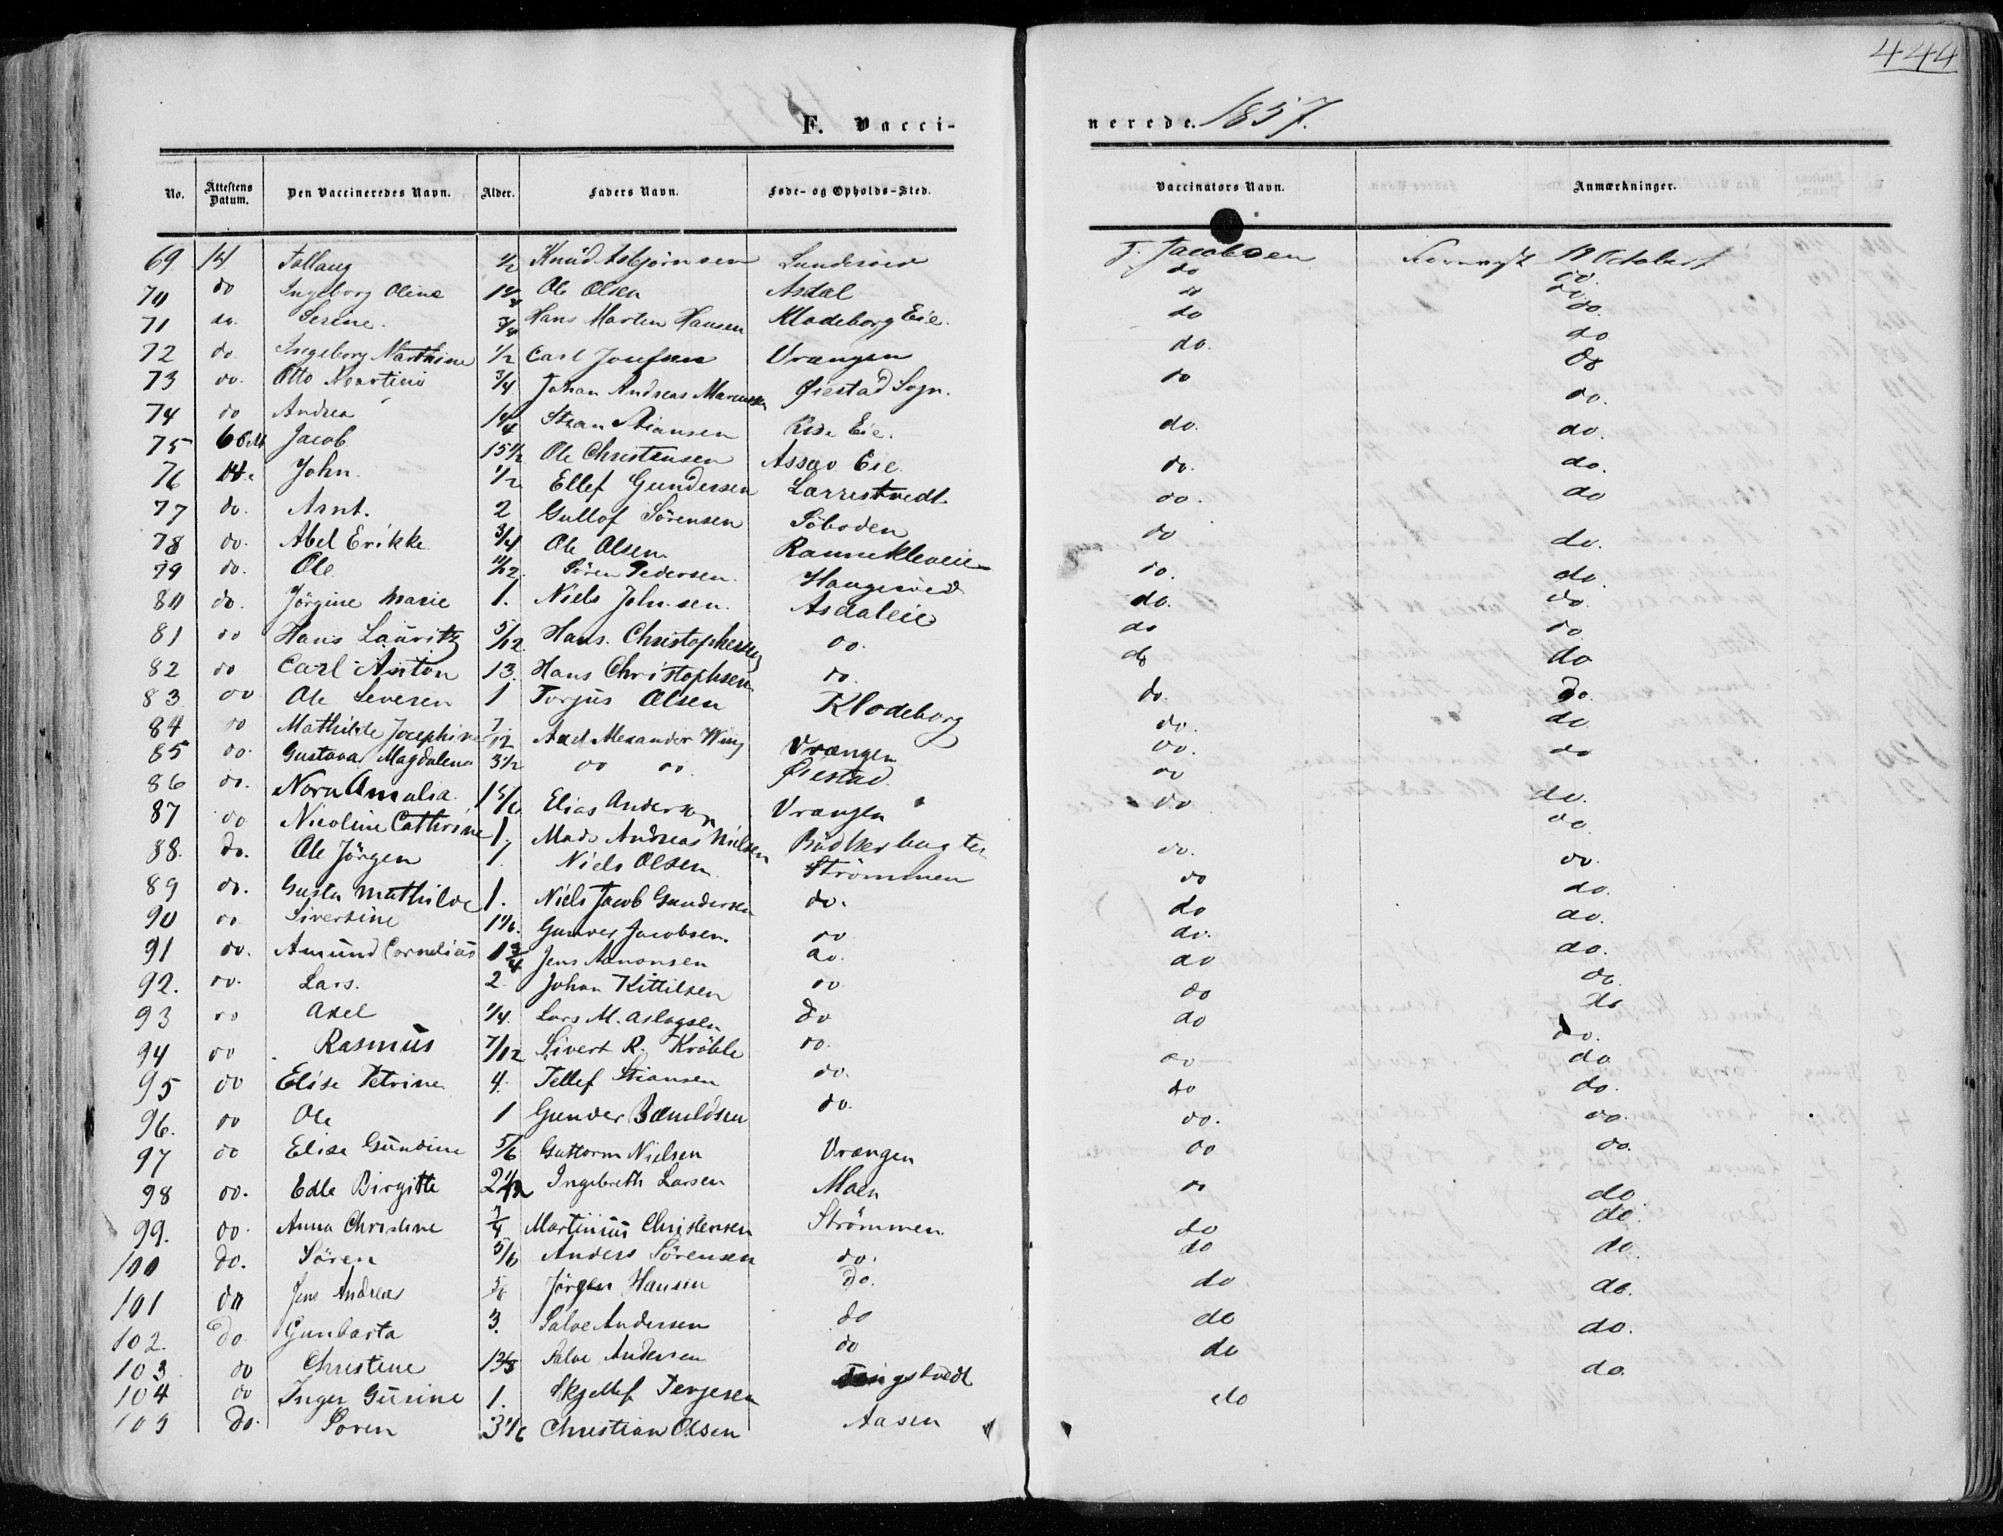 444
F. Vacci-
nerede. 1857.
No. Attestens Datum. Den Vaccineredes Navn. Alder. Faders Navn. Føde- og Opholds-Sted. Vaccinators Navn. Anmærkninger.
69 14 Tallaug 1/2 Knud Asbjørnsen J. Jacobsen 19 October
70 do Ingeborg Oline Ole Olsen Asdal do do.
71 do. Serine. 3/4 Hans Morten Hansen Klodeborg Eie. do do.
72 do. Ingeborg 1/2 Carl Josefsen Vrangen do do.
73 do. Otto Martius 3/4 Johan Andreas Øiestad Sogn. do. do
74 do Andrea Stian Stiansen Eie. do do
75 Jacob 15 1/2 Ole Christensen Assev Eie. do. do.
76 14. John. 1/2 Ellef Gundersen Larrestvedt do. do.
77 do. Arnt. 2 Gullof Sørensen Søboden do. do.
78 do. Abel Erikke 3/4 Ole Olsen Rannekleveie do do
79 do. Ole 11/12 Søren Pedersen. do. do.
80 do. Jørgine Marie 1. Niels Johnsen. Asdaleie do. do.
81 do Hans Lauritz 5/12 Hans Christophersen do. do do.
82 do Carl Anton 13. Hans Christophsen do. do do
83 do Ole Severen 1 Torjus Olsen Klodeborg do. do
84 do Mathilde Josephine 7/12 Axel Alexander Wing Vrangen do. do.
85 do. Gustava Magdalena 3 1/2 do do. Øiestad do. do
86 do. Nora Amalia 1 5/6 Elias Andersen Vrangen do do
87 do Nicoline Cathrine 1. Mads Andreas Nielsen do do.
88. do. Ole Jörgen 1. Niels Olsen Strömmen do. do.
89 do. Gusta Mathilde 1. Niels Jacob Gundersen do. do do.
90 do Siversine 1 1/6. Gunder Jacobsen. do do do.
91 do. Amund Cornelius 1 3/4 Jens Aanonsen do. do. do.
92. do. Lars. 2. Johan Kittilsen do do do.
93 do Axel 1/4. Lars M. Aslagsen do do do.
94 do Rasmus 7/12 Sivert R. Krøble do. do do
95 do Elise Petrine 4. Tellef Stiansen do. do do.
96. do Ole 1 Gunder do. do do.
97 do Elise Gundine 5/6 Guttorm Nielsen Vrangen do. do.
98 do. Edle Birgitte Ingebreth Larsen Moen do do.
99. do. Anna Christine Martinius Christensen Strömmen do do.
100 do. Søren 5/6 Anders Sørensen do. do do
101 do Jens Andreas Jørgen Hansen do. do do.
102. do. Gunbarta 3. Salve Andersen do do. do.
103 do Christine Salve Andersen do do do.
104 do Inger Gurine 1. Skjellef Terjesen Tingstvedt do do.
105 do. Soren 3 1/6 Christian Olsen Aasen do do.